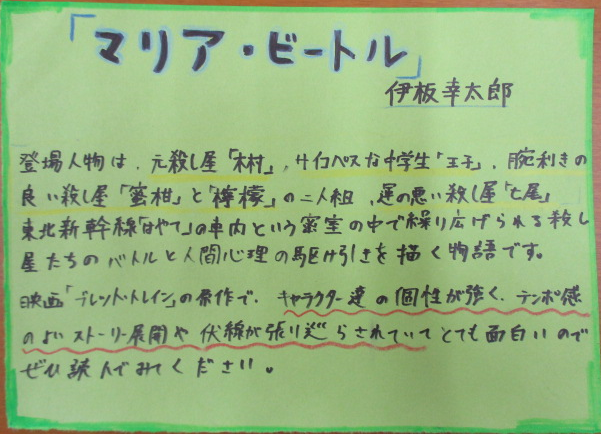 「マリア・ビートル」
伊板幸太郎
登場人物は、元殺し屋「木村」、サイコペスな中学生「王子」、腕利きの
良い殺し屋「蜜柑」と「檸檬」の二人組、運の悪い殺し屋「七尾」
東北新幹線「はやて」の車内という密室の中で繰り広げられる殺し
屋たちのバトルと人間心理の駆け引きを描く物語です。
映画「ブレット・トレイン」の原作で、キャラクター達の個性が強く、テンポ感
のよいストーリー展開や伏線が張り巡らされていてとても面白いので
ぜひ読んでみてください。